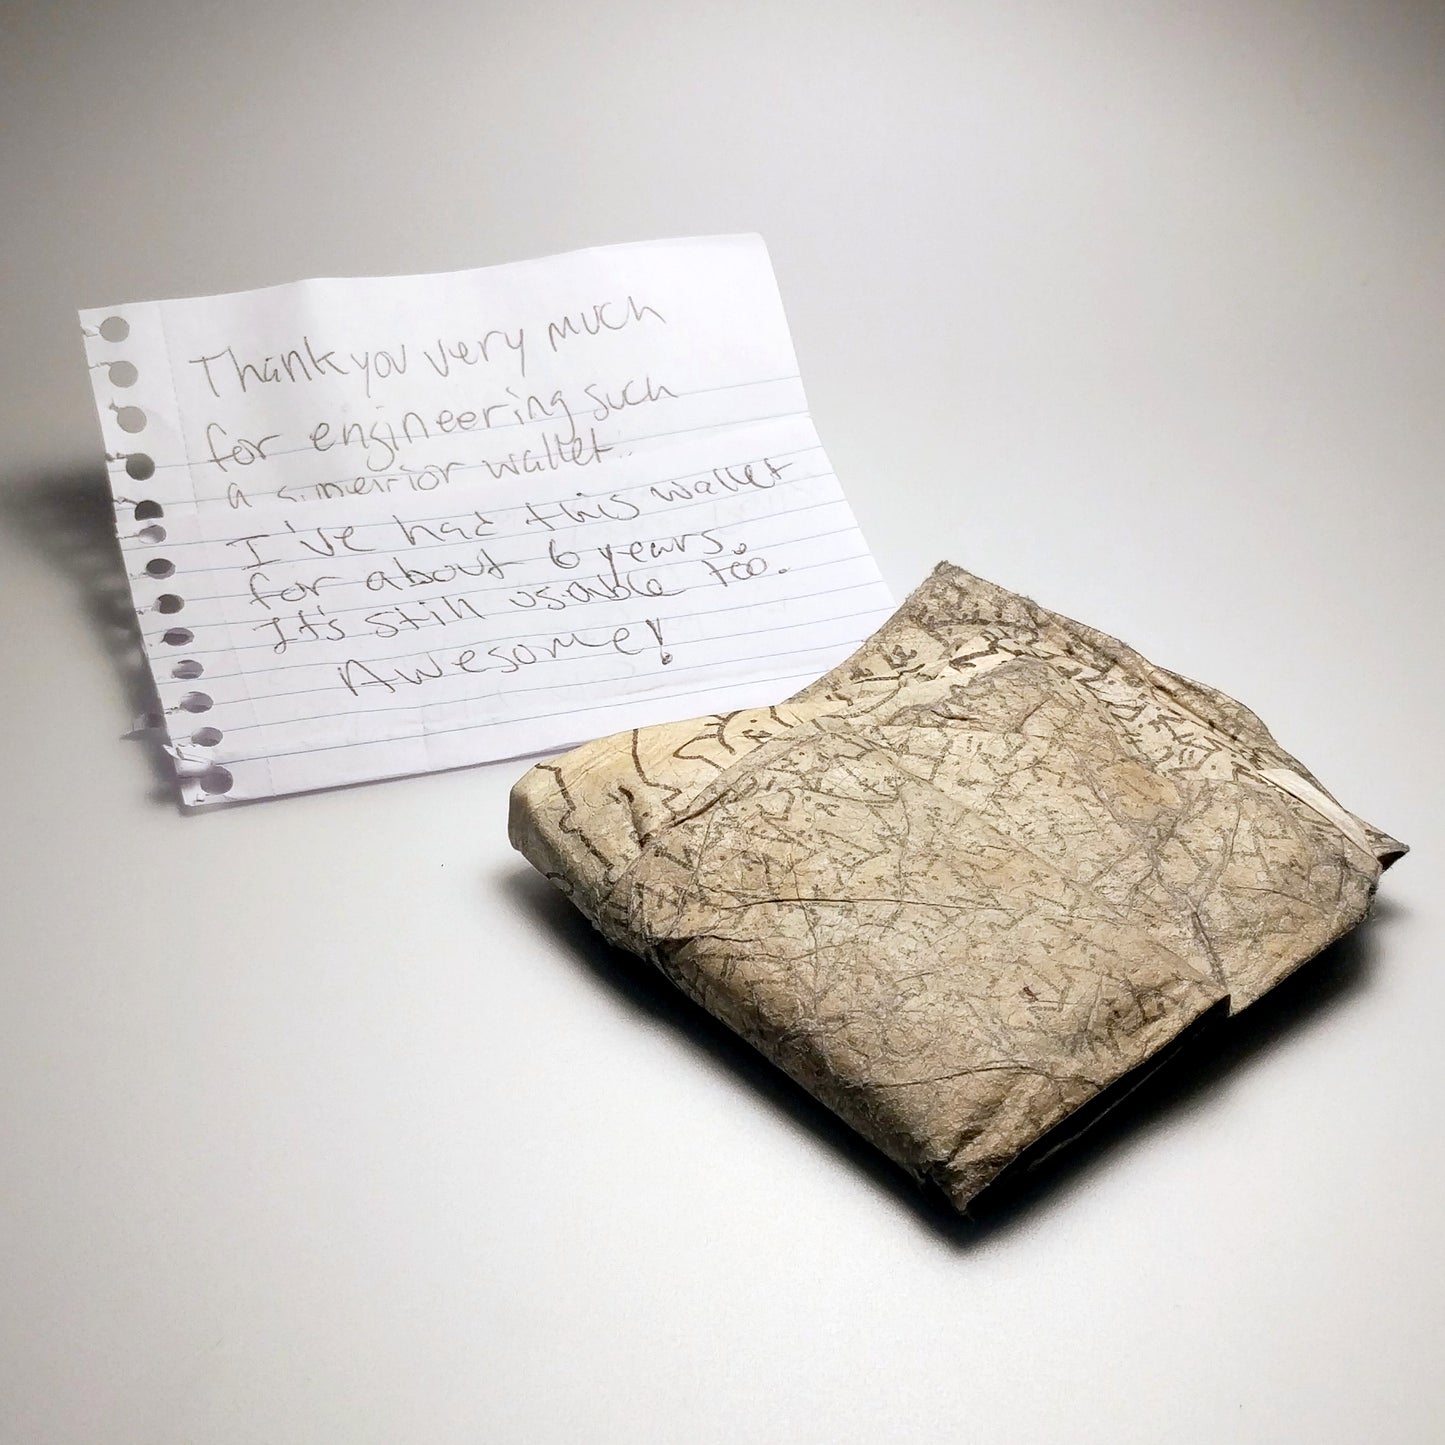 Thank you very much
for engineering such
a wallet.
I've had this wallet
for about 6 years.
It's still usable too.
Awesome!